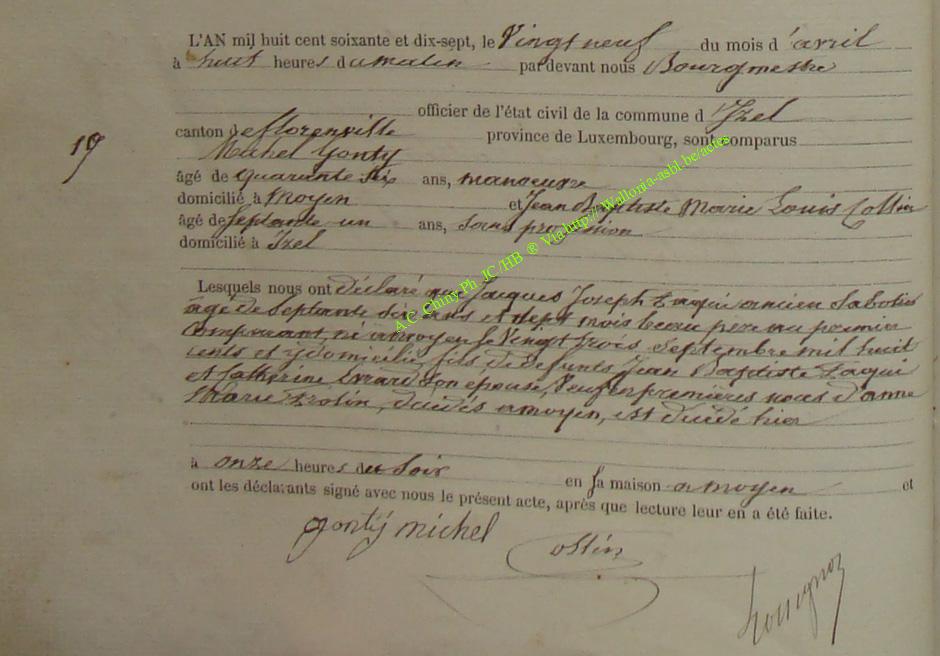 L'AN mil huit cent soixante et dix-sept, le Vingt neuf du mois d'avril
à huit heures du matin par devant nous Bourgmestre
officier de l'état civil de la commune d'Izel
19
canton de florenville province de Luxembourg, sont comparus
Michel Gonty
âgé de quarante six ans, manoeuvre
domicilié à Moyen et Jean Baptiste Marie Louis Collin
âgé de Septante un ans, sans profession
domicilié à Izel
A.C. Chiny Ph. JC/HB ® Via http://Wallonia-asbl.be/actes
Lesquels nous ont déclaré que Jacques Joseph Zaqui ancien Sabotier
âgé de Septante Six ans et Sept mois beau père au premier
Comparant, né a moyen le Vingt trois Septembre mil huit
cents et y domicilié, fils de defunts Jean Baptiste Zaqui
et Catherine Evrard Son epouse, Veuf en premières noces d'anne
Marie, décédés a moyen, est décédé hier
à onze heures du Soir en Sa maison a moyen et
ont les déclarants signé avec nous le présent acte, après que lecture leur en a été faite.
gontÿ michel
Rossignon